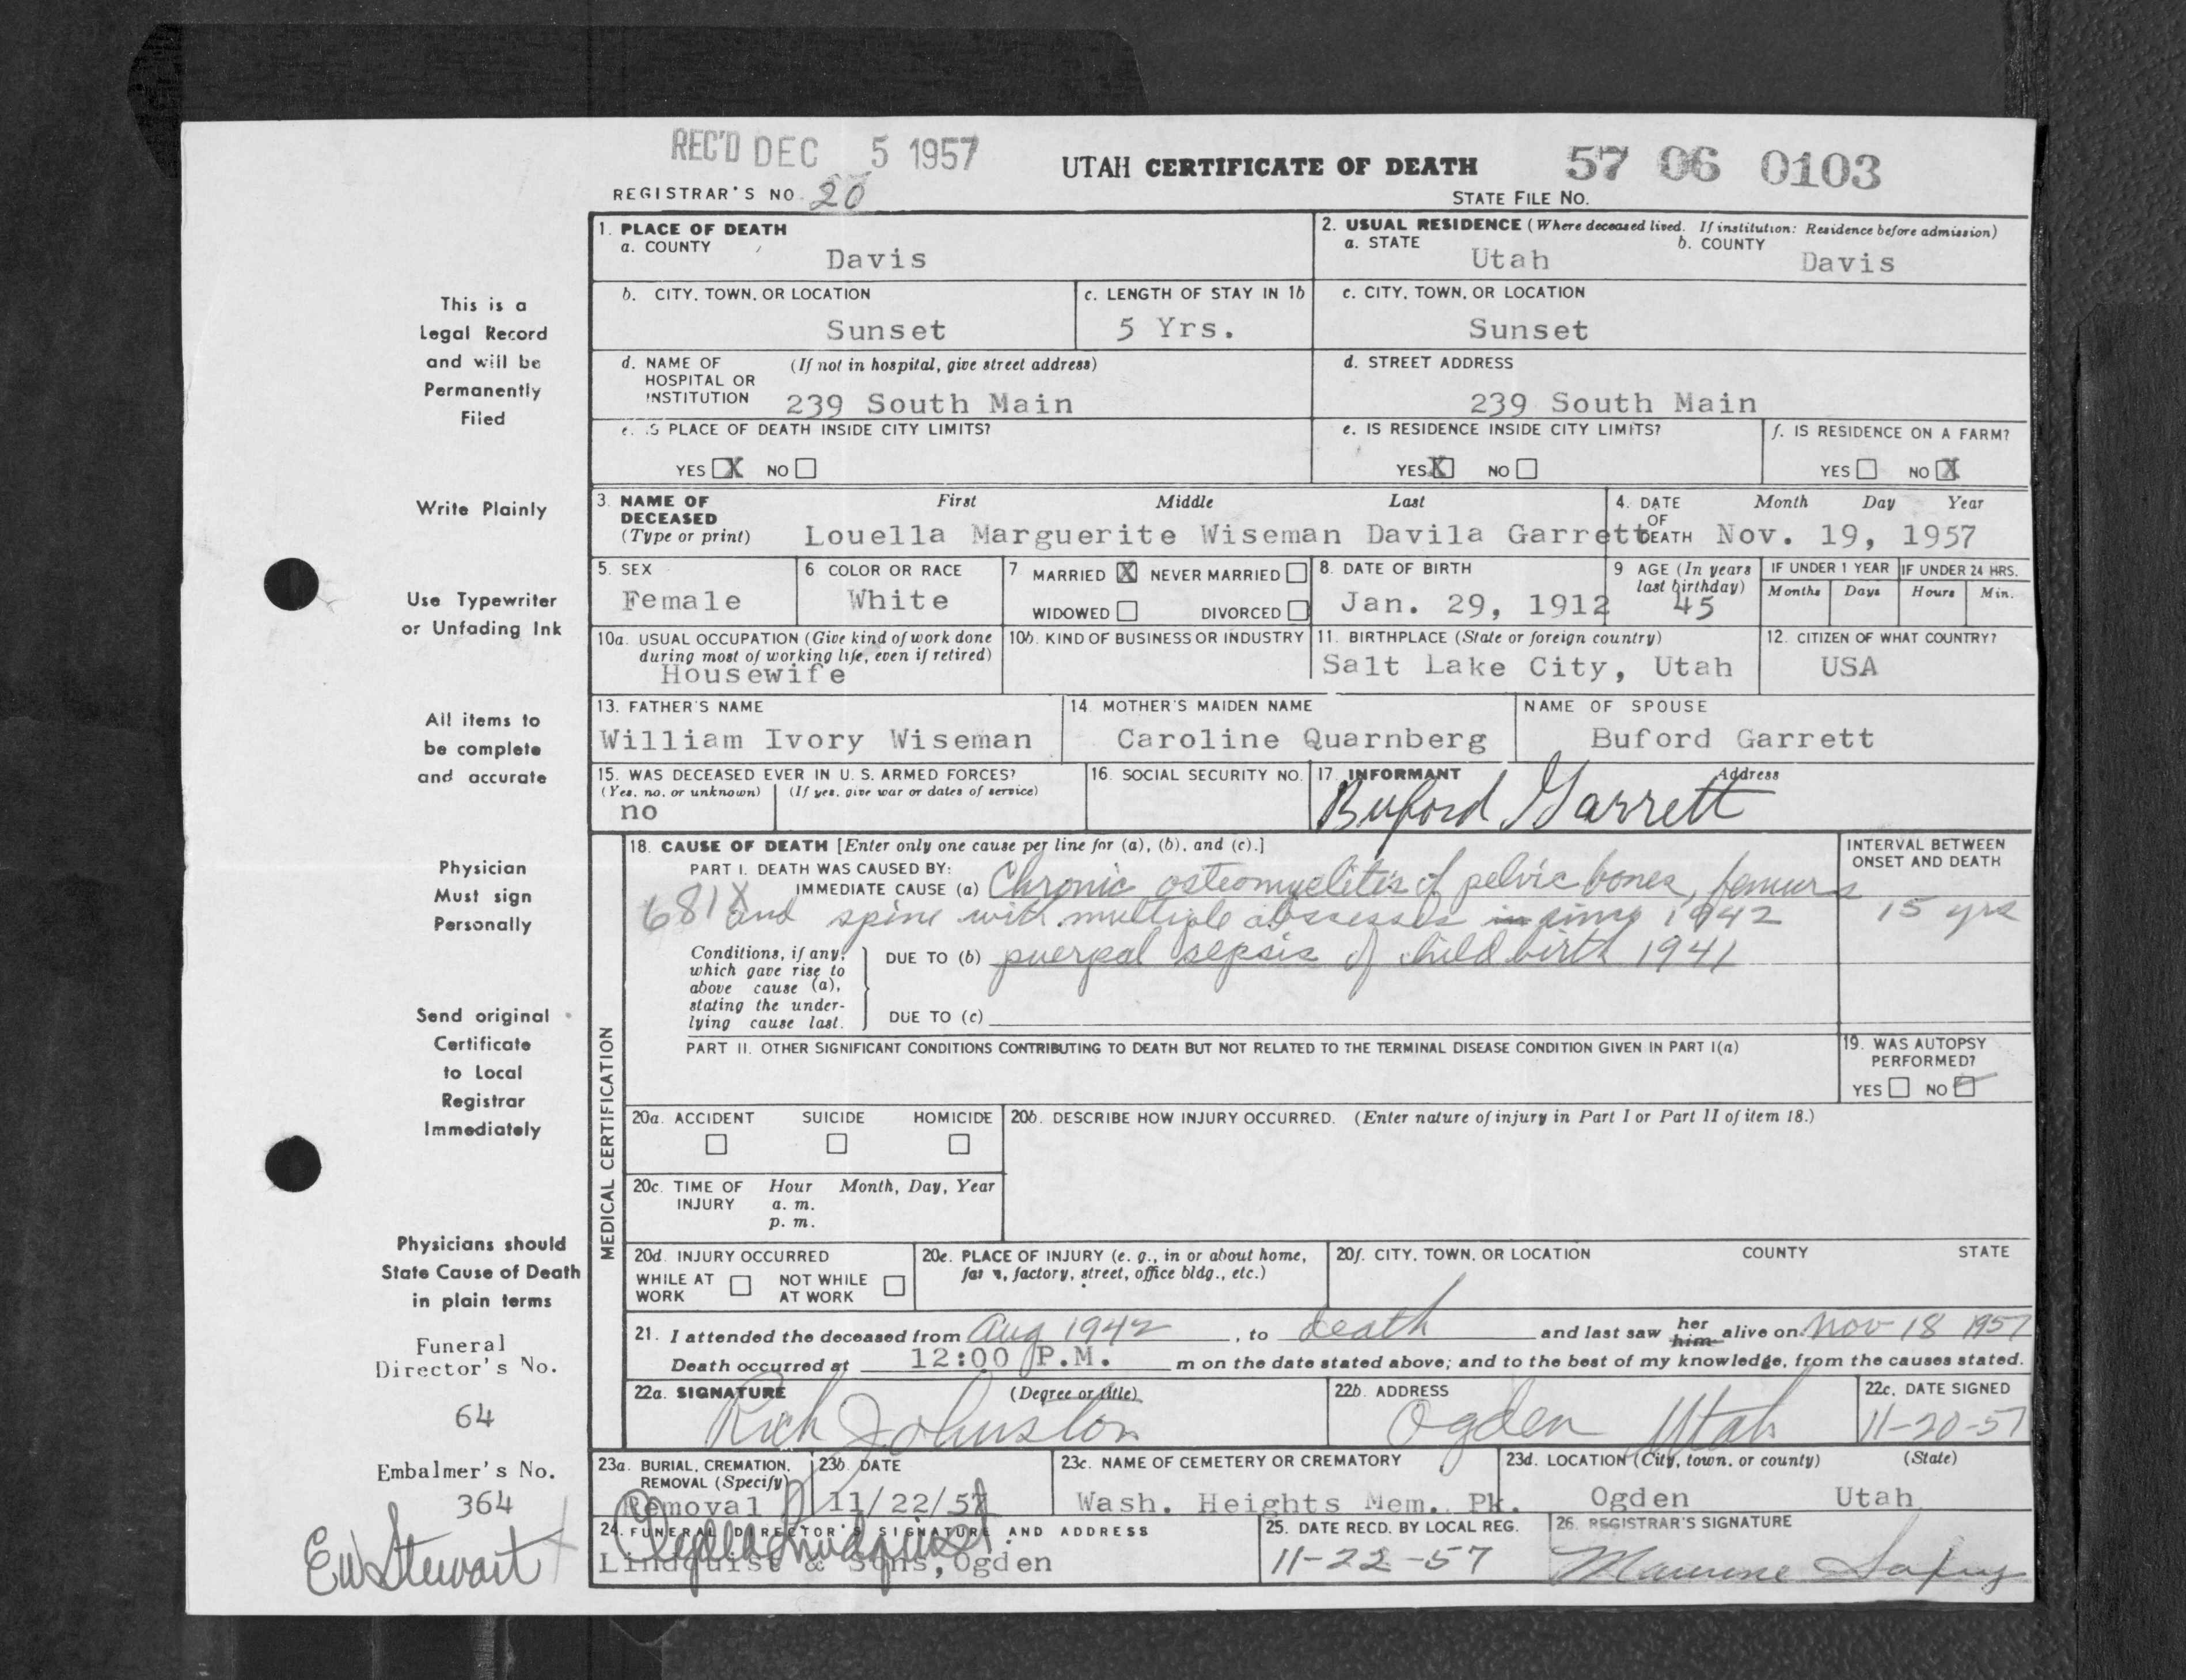 REC'D DEC 5 1957
UTAH CERTIFICATE OF DEATH
57 06 0103
REGISTRAR'S NO. 20
STATE FILE No.
1. PLACE OF DEATH
a. COUNTY
Davis
2. USUAL RESIDENCE (Where deceased lived. If institution: Residence before admission)
a. STATE
Utah
b. COUNTY
Davis
b. CITY, TOWN, OR LOCATION
Sunset
c. LENGTH OF STAY IN 1b
5 Yrs.
c. CITY, TOWN, OR LOCATION
Sunset
d. NAME OF HOSPITAL OR INSTITUTION
(If not in hospital, give street address)
239 South Main
d. STREET ADDRESS
239 South Main
e. IS PLACE OF DEATH INSIDE CITY LIMITS?
YES X NO
e. IS RESIDENCE INSIDE CITY LIMITS?
YES X NO
f. IS RESIDENCE ON A FARM?
YES NO X
3. NAME OF DECEASED (Type or print)
First Middle Last
Louella Marguerite Wiseman Davila Garrett
4. DATE OF DEATH
Month Day Year
Nov. 19, 1957
5. SEX
Female
6 COLOR OR RACE
White
7 MARRIED X NEVER MARRIED
WIDOWED DIVORCED
8. DATE OF BIRTH
Jan. 29, 1912
9 AGE (In years last birthday)
45
IF UNDER 1 YEAR
Months Days
IF UNDER 24 HRS.
Hours Min.
10a. USUAL OCCUPATION (Give kind of work done during most of working life, even if retired)
Housewife
10b. KIND OF BUSINESS OR INDUSTRY
11. BIRTHPLACE (State or foreign country)
Salt Lake City, Utah
12. CITIZEN OF WHAT COUNTRY?
USA
13. FATHER'S NAME
William Ivory Wiseman
14. MOTHER'S MAIDEN NAME
Caroline Quarnberg
NAME OF SPOUSE
Buford Garrett
15. WAS DECEASED EVER IN U. S. ARMED FORCES?
(Yes, no, or unknown) (If yes, give war or dates of service)
no
16. SOCIAL SECURITY NO.
17. INFORMANT Address
Buford Garrett
MEDICAL CERTIFICATION
18. CAUSE OF DEATH [Enter only one cause per line for (a), (b), and (c).]
INTERVAL BETWEEN ONSET AND DEATH
PART I. DEATH WAS CAUSED BY:
IMMEDIATE CAUSE (a) Chronic osteomyelitis of pelvic bones, femurs
681X and spine with multiple abscesses in since 1942
15 yrs
Conditions, if any, which gave rise to above cause (a), stating the underlying cause last.
DUE TO (b) puerpal sepsis of child birth 1941
DUE TO (c)
PART II. OTHER SIGNIFICANT CONDITIONS CONTRIBUTING TO DEATH BUT NOT RELATED TO THE TERMINAL DISEASE CONDITION GIVEN IN PART I(a)
19. WAS AUTOPSY PERFORMED?
YES NO
20a. ACCIDENT SUICIDE HOMICIDE
20b. DESCRIBE HOW INJURY OCCURRED. (Enter nature of injury in Part I or Part II of item 18.)
20c. TIME OF INJURY
Hour Month, Day, Year
a. m.
p. m.
20d. INJURY OCCURRED
WHILE AT WORK NOT WHILE AT WORK
20e. PLACE OF INJURY (e. g., in or about home, farm, factory, street, office bldg., etc.)
20f. CITY, TOWN, OR LOCATION COUNTY STATE
21. I attended the deceased from Aug 1942, to death and last saw her him alive on Nov 18 1957
Death occurred at 12:00 P.M. m on the date stated above; and to the best of my knowledge, from the causes stated.
22a. SIGNATURE (Degree or title)
Rich Johnston
22b. ADDRESS
Ogden Utah
22c. DATE SIGNED
11-20-57
23a. BURIAL, CREMATION, REMOVAL (Specify)
Removal
23b. DATE
11/22/57
23c. NAME OF CEMETERY OR CREMATORY
Wash. Heights Mem. Pk.
23d. LOCATION (City, town, or county) (State)
Ogden Utah
24. FUNERAL DIRECTOR'S SIGNATURE AND ADDRESS
Lindquist & Sons, Ogden
25. DATE RECD. BY LOCAL REG.
11-22-57
26. REGISTRAR'S SIGNATURE
Maurine
This is a
Legal Record
and will be
Permanently
Filed
Write Plainly
Use Typewriter
or Unfading Ink
All items to
be complete
and accurate
Physician
Must sign
Personally
Send original
Certificate
to Local
Registrar
Immediately
Physicians should
State Cause of Death
in plain terms
Funeral
Director's No.
64
Embalmer's No.
364
EW Stewart